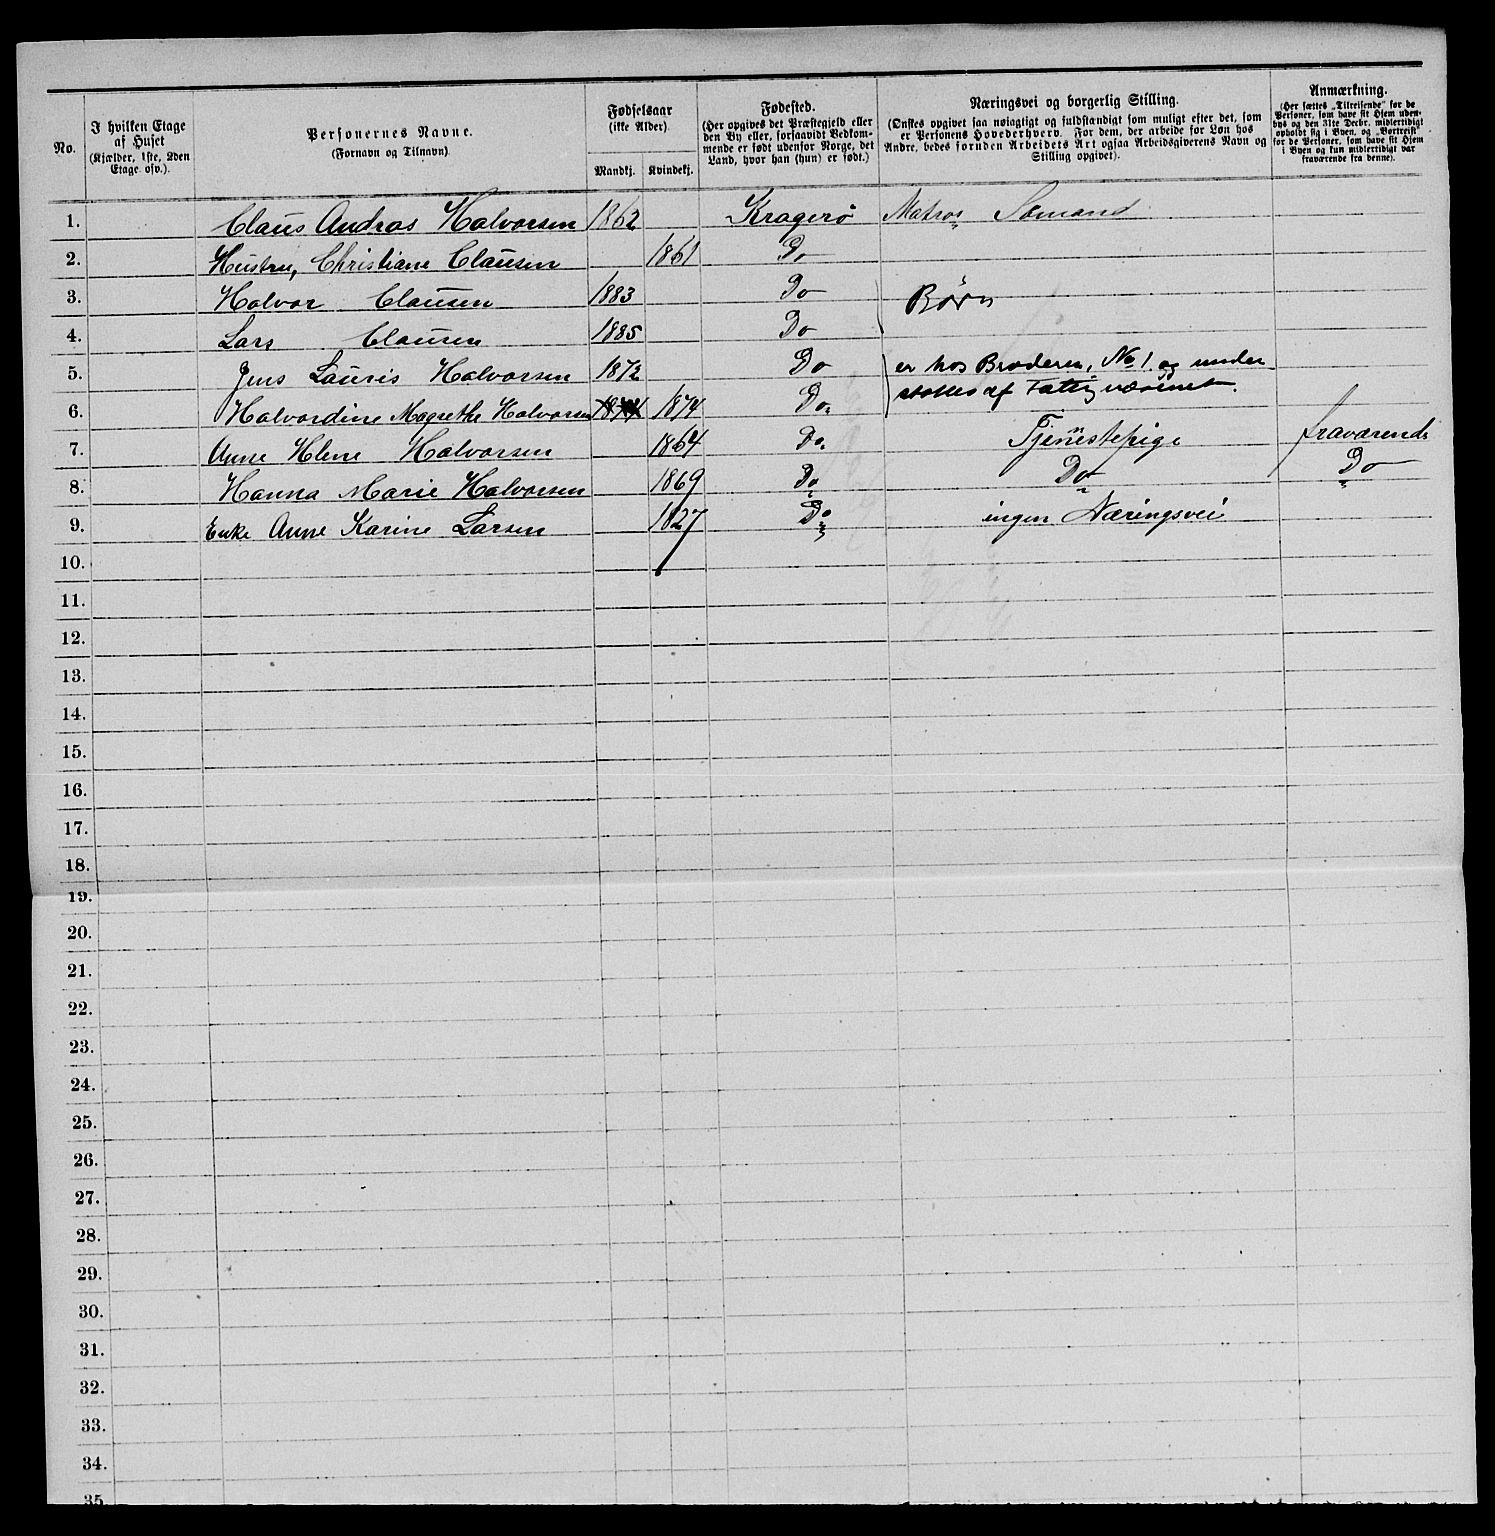 No.
I hvilken Etage
af Huset
(Kjælder, 1ste, 2den
Etage osv.).
Personernes Navne.
(Fornavn og Tilnavn)
Fødselsaar
(ikke Alder).
Mandkj. Kvindekj.
Fødested.
(Her opgives det Præstegjeld eller
den By eller, forsaavidt Vedkom-
mende er født udenfor Norge, det
Land, hvor han (hun) er født.)
Næringsvei og borgerlig Stilling.
(Ønskes opgivet saa nøiagtigt og fuldstændigt som muligt efter det, som
er Personens Hovederhverv. For dem, der arbeide for Løn hos
Andre, bedes foruden Arbeidets Art ogsaa Arbeidsgiverens Navn og
Stilling opgivet).
Anmærkning.
(Her sættes „Tilreisende" for de
Personer, som have sit Hjem uden-
bys og den 31te Decbr. midlertidigt
opholdt sig i Byen, og „Bortreist"
for de Personer, som have sit Hjem
i Byen og kun midlertidigt var
fraværende fra denne).
1. Claus Andras Halvorsen 1862 Kragerø Matros Sømand
2. Hustru, Christiane Clausen 1861 Do
3. Halvor Clausen 1883 Do Børn
4. Lars Clausen 1885 Do
5. Jens Lauris Halvorsen 1872 Do er hos Broderen, No 1. og under
6. Halvordine Magrethe Halvorsen 1874 1874 Do støttes af Fattigvæsenet.
7. Anne Helene Halvorsen 1864 Do Tjenestepige fraværende
8. Hanna Marie Halvorsen 1869 Do Do Do
9. Enke Anne Karine Larsen 1827 Do ingen Næringsvei
10.
11.
12.
13.
14.
15.
16.
17.
18.
19.
20.
21.
22.
23.
24.
25.
26.
27.
28.
29.
30.
31.
32.
33.
34.
35.